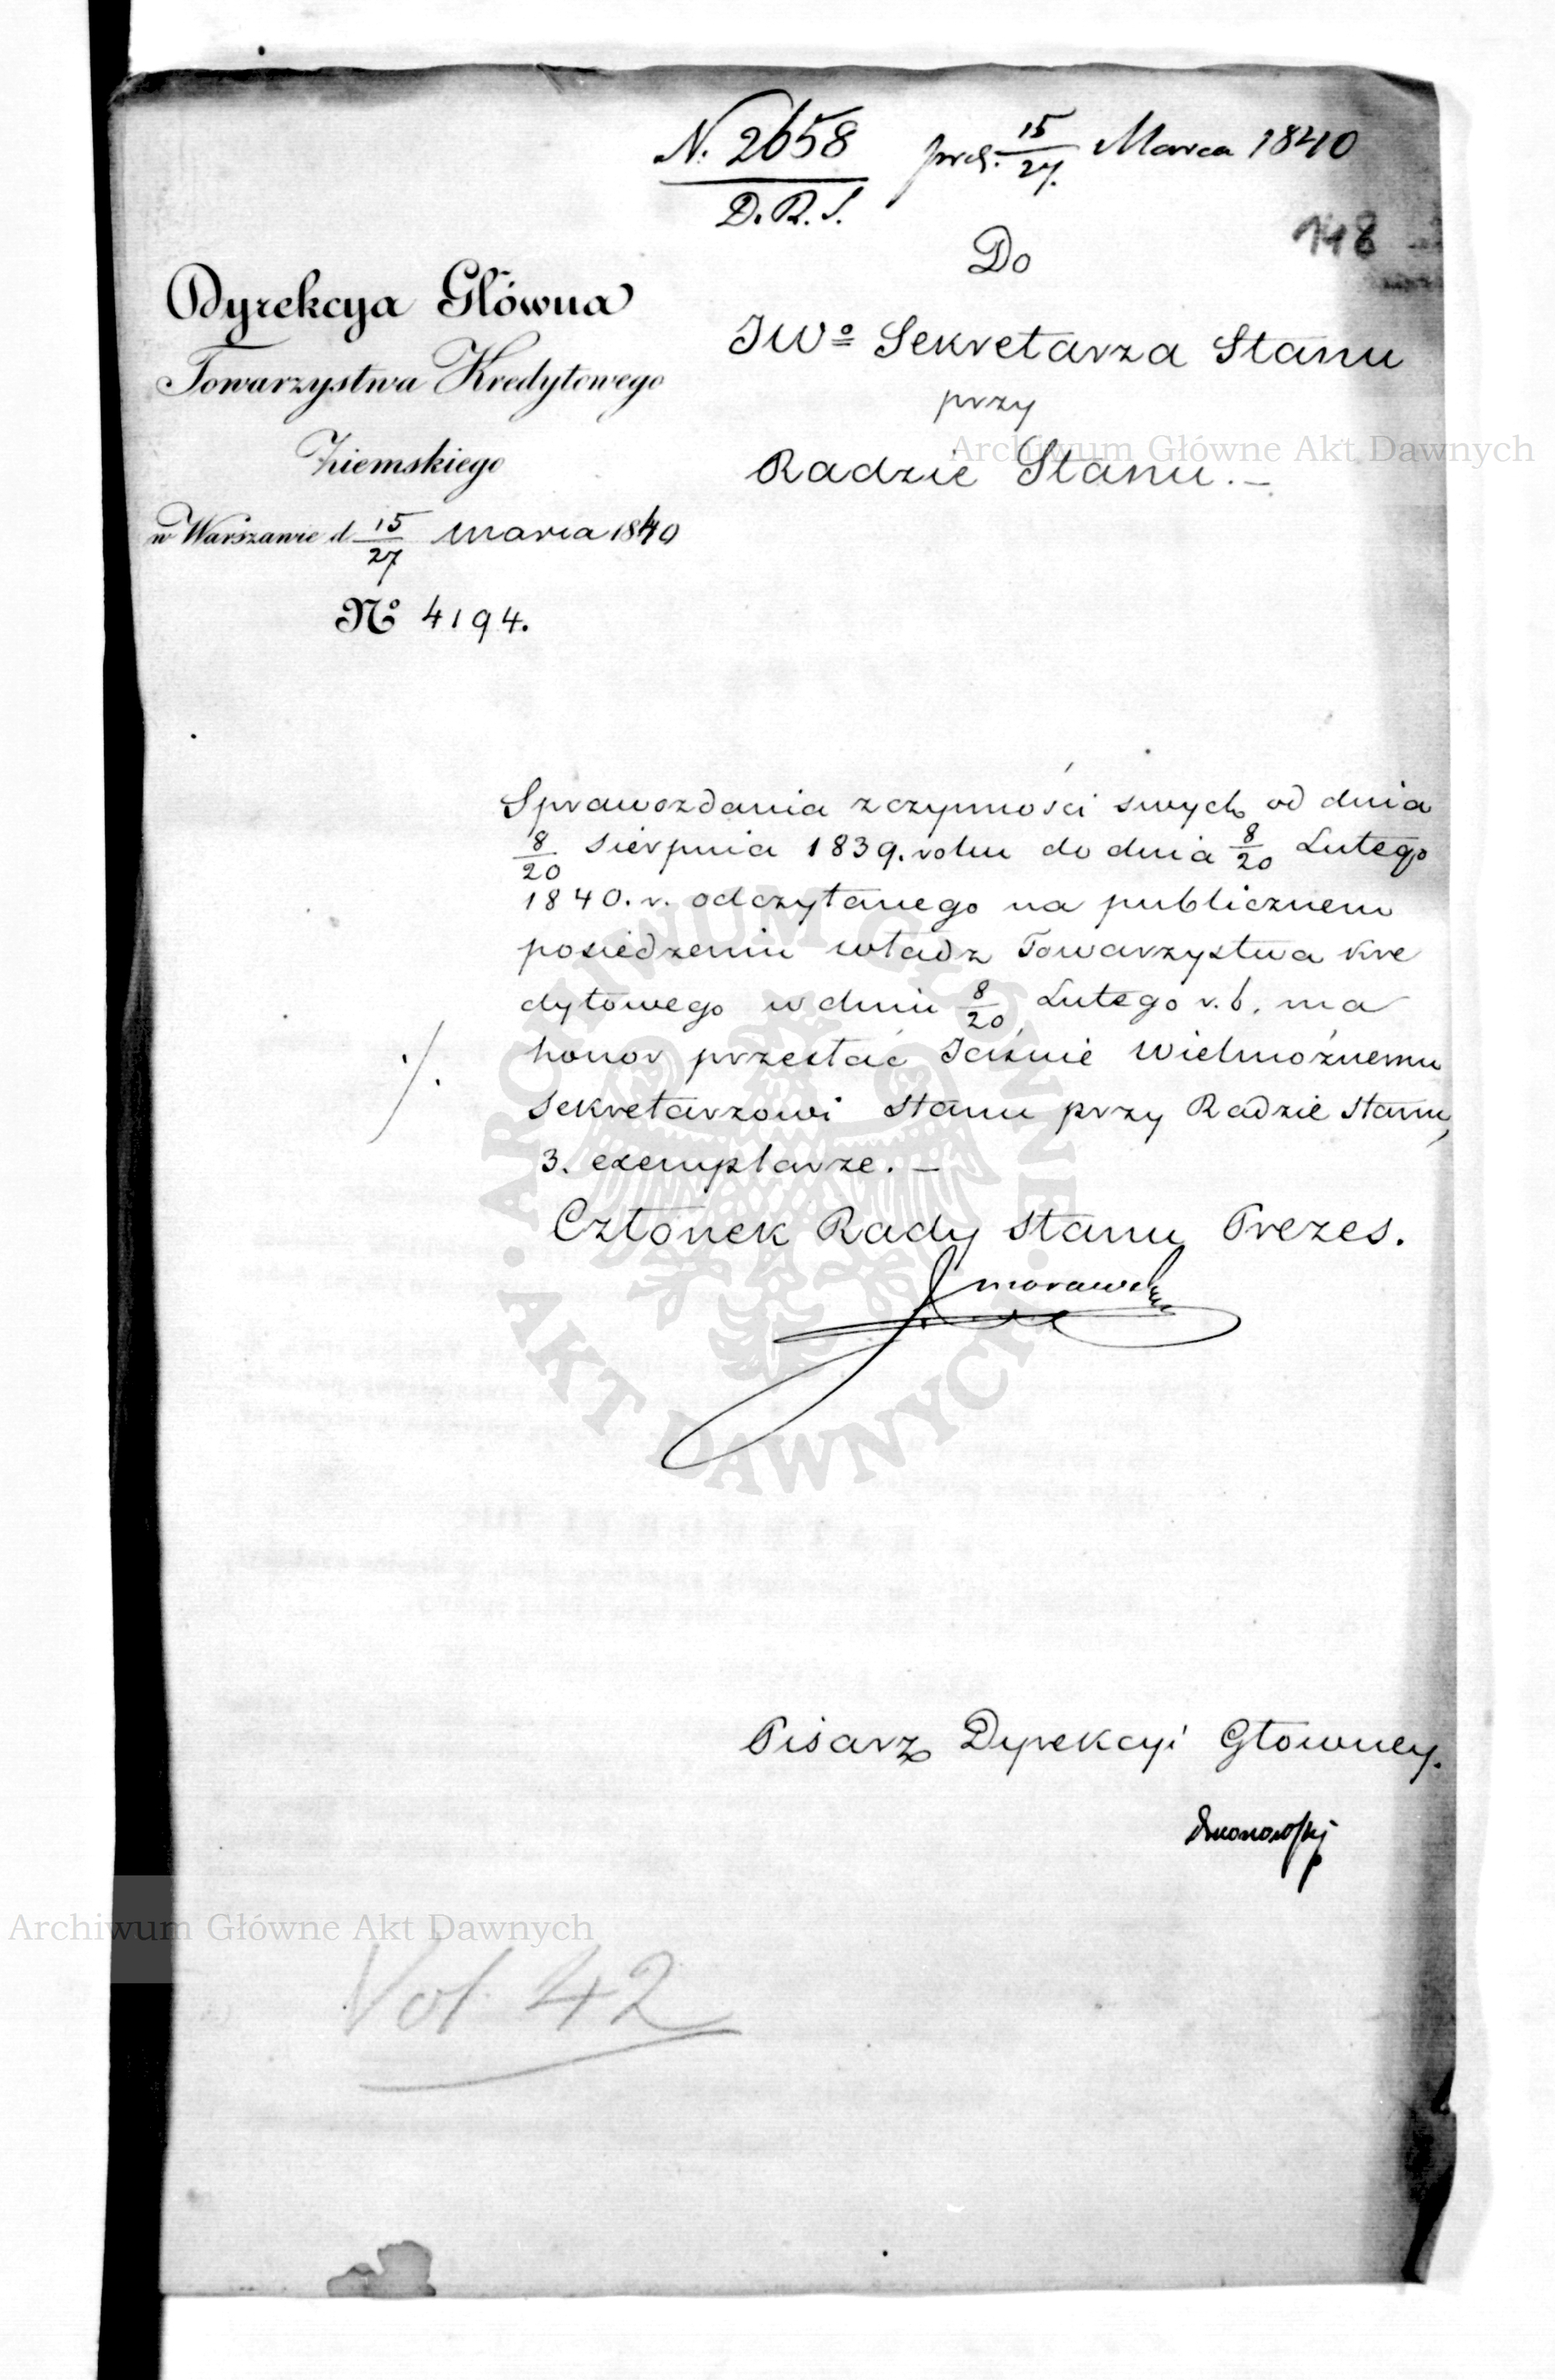 N. 2658
D. R. S.
15/27. Marca 1840
148
Dyrekcya Główna
Towarzystwa Kredytowego
Ziemskiego
w Warszawie d 15/27 marca 1840
No 4194.
Do
JWo Sekretarza Stanu
przy
Radzie Stanu. –
Sprawozdania z czynności swych od dnia
8/20 Sierpnia 1839. roku do dnia 8/20 Lutego
1840. r. odczytanego na publicznem
posiedzeniu władz Towarzystwa Kre
dytowego w dniu 8/20 Lutego r. b. ma
honor przesłać Jaśnie Wielmożnemu
Sekretarzowi Stanu przy Radzie Stanu,
3. exemplarze. –
Członek Rady Stanu Prezes.
Morawski
Pisarz Dyrekcyi Głowney.
Vol. 42
Archiwum Główne Akt Dawnych
Archiwum Główne Akt Dawnych
ARCHIWUM GŁÓWNE AKT DAWNYCH